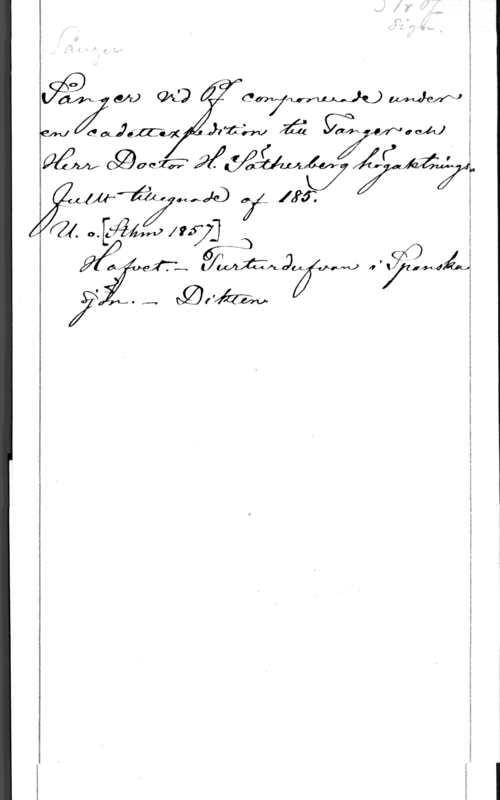 Sånger
Sånger vid Pf componerade under
en cadettexpedition till Tanger och
Herr Doctor H. Sätherberg högaktnings-
fullt tillegnade af 185.
U. o. [Sthm 1857]
Hafvet. - Turturdufvan i Spanska
sjön. - Dikten